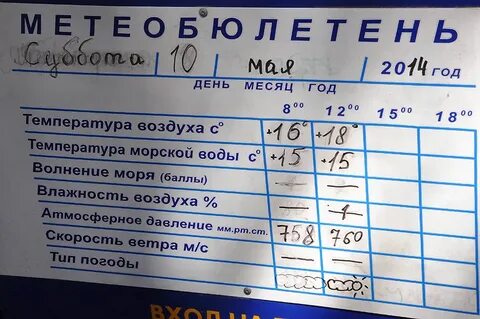 МЕТЕОБЮЛЕТЕНЬ
Суббота 10 мая 2014 год
ДЕНЬ МЕСЯЦ ГОД
8⁰⁰ 12⁰⁰ 15⁰⁰ 18⁰⁰
Температура воздуха с° +16° +18°
Температура морской воды с° +15 +15
Волнение моря (баллы) — —
Влажность воздуха % —
Атмосферное давление мм.рт.ст. 758 760
Скорость ветра м/с — —
Тип погоды
ВХОД НА